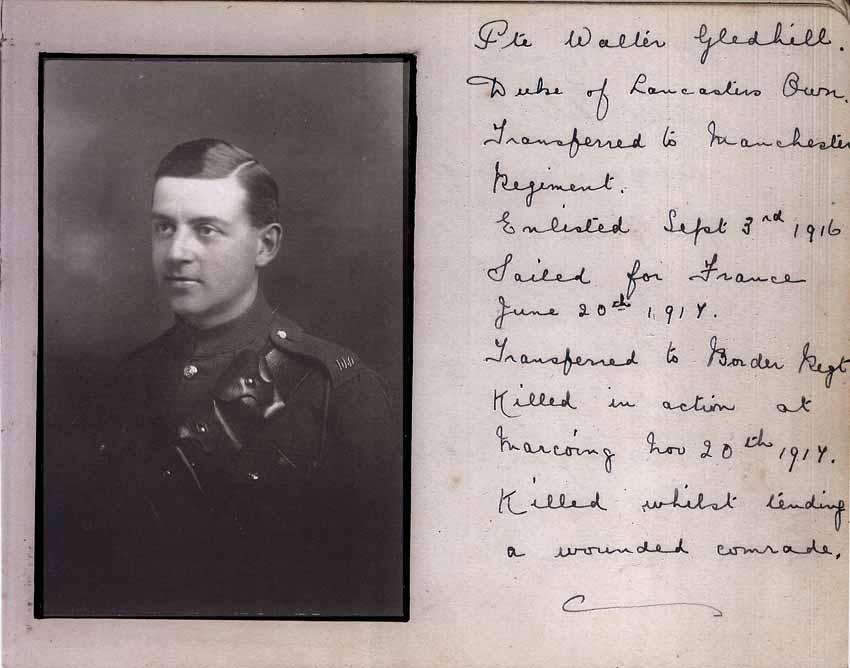 Pte Walter Gledhill.
Duke of Lancasters Own.
Transferred to Manchester
Regiment.
Enlisted Sept 3rd 1916
Sailed for France
June 20th 1917.
Transferred to Border Regt
Killed in action at
Marcoing Nov 20th 1917.
Killed whilst tending
a wounded comrade.